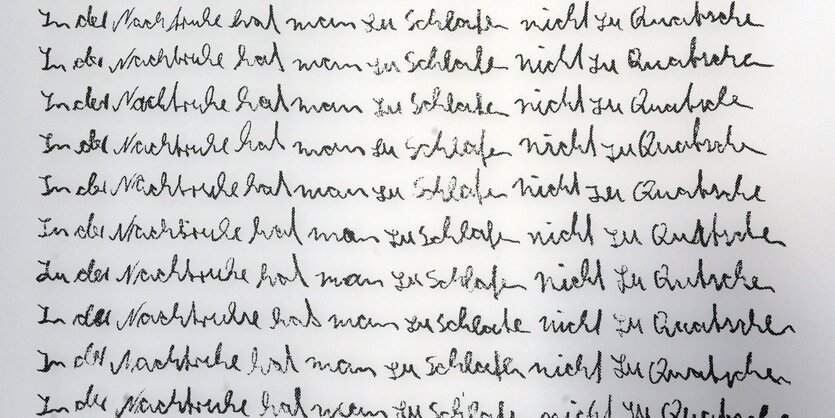 In der Nachtruhe hat man zu Schlafen nicht zu Quatsche
In der Nachtruhe hat man zu Schlafen nicht zu Quatschen
In der Nachtruhe hat man zu Schlafen nicht zu Quatsche
In der Nachtruhe hat man zu Schlafen nicht zu Quatschen
In der Nachtruhe hat man zu Schlafen nicht zu Quatsche
In der Nachtruhe hat man zu Schlafen nicht zu Quatschen
In der Nachtruhe hat man zu Schlafen nicht zu Qutschen
In der Nachtruhe hat man zu Schlafe nicht zu Quatschen
In der Nachtruhe hat man zu Schlafen nicht zu Quatschen
In der Nachtruhe hat man zu Schlafen nicht zu Quatsche